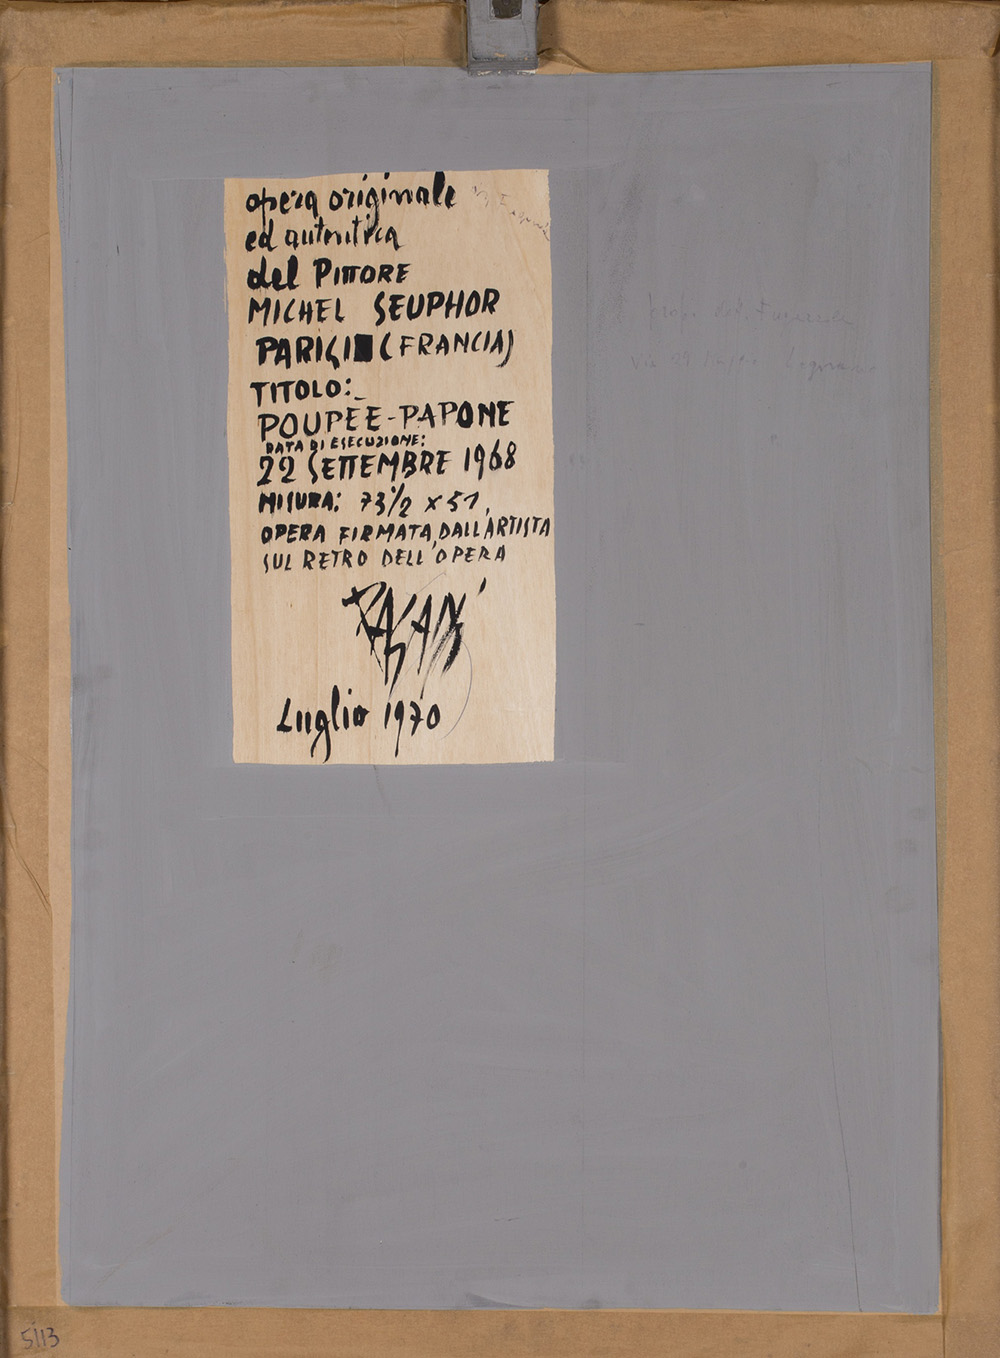 opera originale
ed autentica
del PITTORE
MICHEL SEUPHOR
PARIGI (FRANCIA)
TITOLO:
POUPÉE-PAPONE
DATA DI ESECUZIONE:
22 SETTEMBRE 1968
MISURA: 73½ x 51,
OPERA FIRMATA DALL'ARTISTA
SUL RETRO DELL'OPERA
Luglio 1970
via
5113